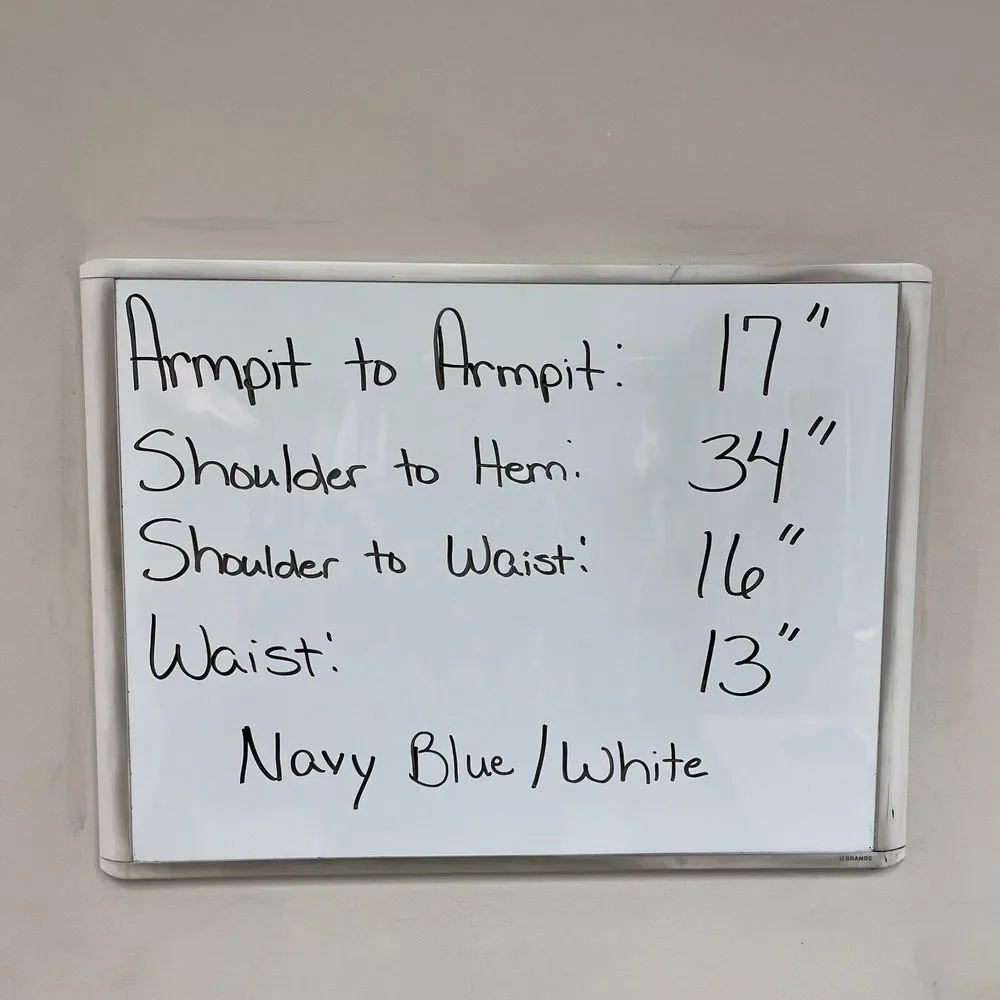 Armpit to Armpit: 17"
Shoulder to Hem: 34"
Shoulder to Waist: 16"
Waist: 13"
Navy Blue / White
U BRANDS